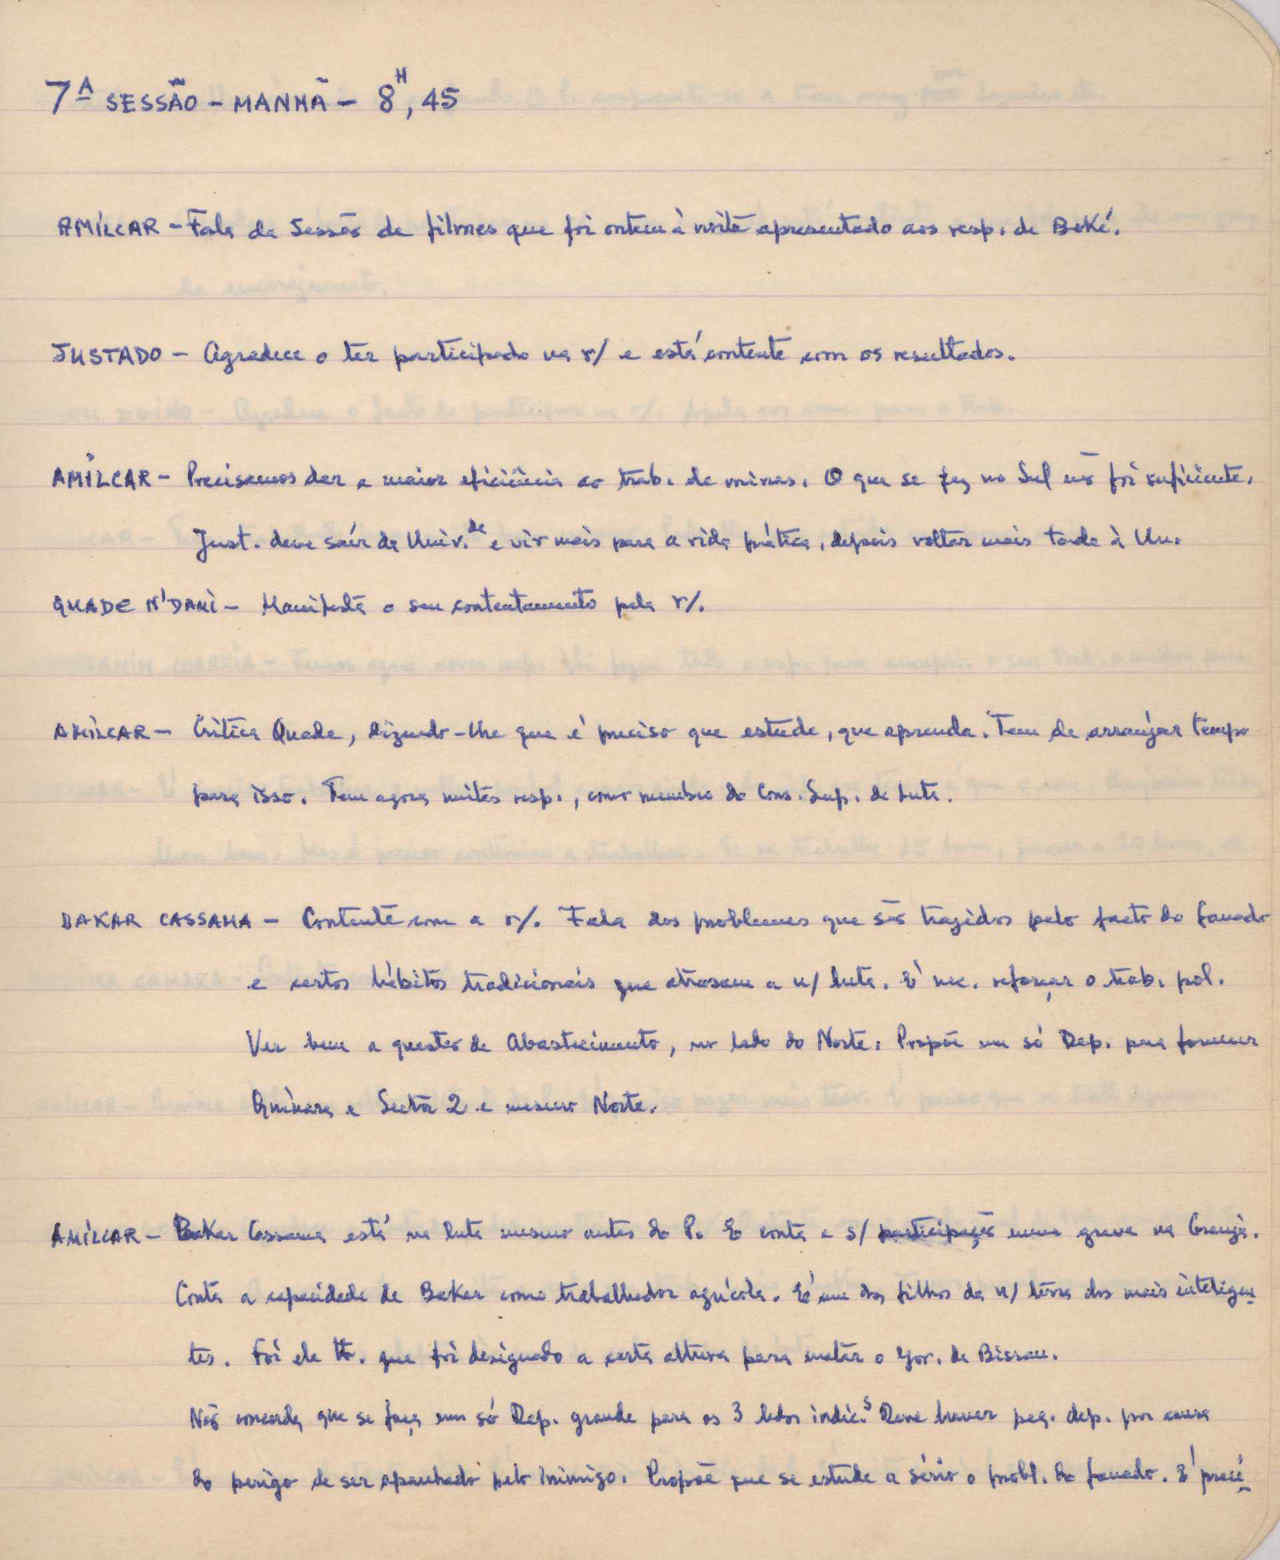 7ª SESSÃO - MANHÃ - 8H,45
AMÍLCAR - Fala da Sessão de filmes que foi ontem à noite apresentado aos resp. de Boké.
JUSTADO - Agradece o ter participado na r/ e está contente com os resultados.
AMÍLCAR - Precisamos dar a maior eficiência ao trab. de minas. O que se fez no Sul não foi suficiente.
Just. deve saír da Univ.de e vir mais para a vida prática, depois voltar mais tarde à Un.
QUADE N'DAMI - Manifesta o seu contentamento pela r/.
AMÍLCAR - Critica Quade, dizendo-lhe que é preciso que estude, que aprenda. Tem de arranjar tempo
para isso. Tem agora muitas resp., como membro do Cons. Sup. de Luta.
BAKAR CASSAMA - Contente com a r/. Fala dos problemas que são trazidos pelo facto do fanado
e certos hábitos tradicionais que atrasam a n/ luta. É nec. reforçar o trab. pol.
Ver bem a questão de Abastecimento, no lado do Norte. Propõe um só Dep. para fornecer
Quínara e Sector 2 e mesmo Norte.
AMÍLCAR - Bakar Cassama está na luta mesmo antes do P. E conta a s/ participação numa greve na Granja.
Conta a capacidade de Bakar como trabalhador agrícola. É um dos filhos da n/ terra dos mais inteligen
tes. Foi ele tb. que foi designado a certa altura para matar o Gov. de Bissau.
Não concorda que se faça um só Dep. grande para os 3 lados indic.s Deve haver peq. dep. por causa
do perigo de ser apanhado pelo inimigo. Propõe que se estude a sério o probl. do fanado. É preci